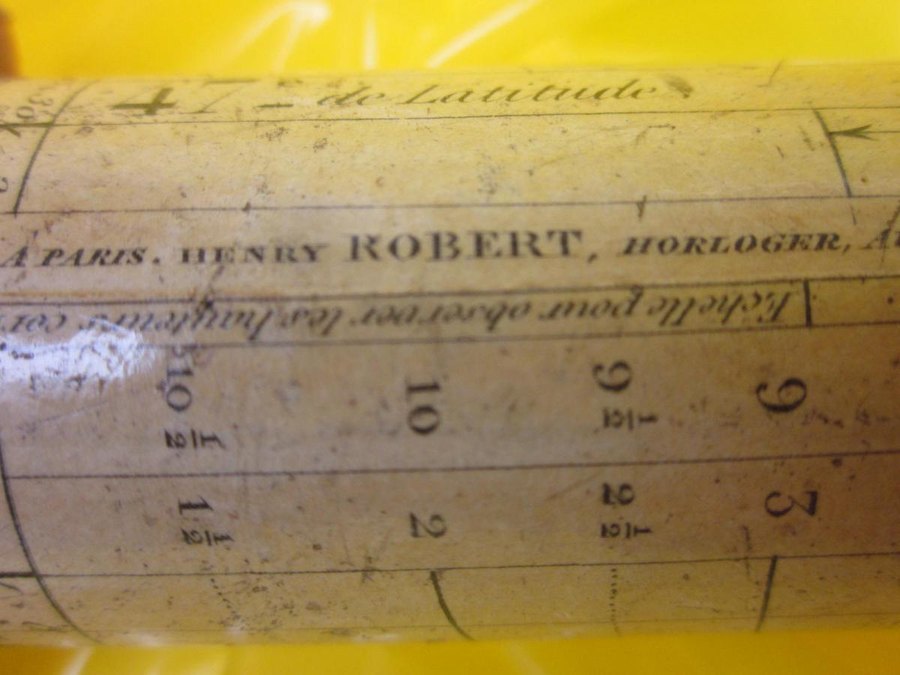 47 - de Latitude
A PARIS. HENRY ROBERT, HORLOGER,
Echelle pour observer les hauteurs
10 ½ 10 9 ½ 9
1 ½ 2 2 ½ 3